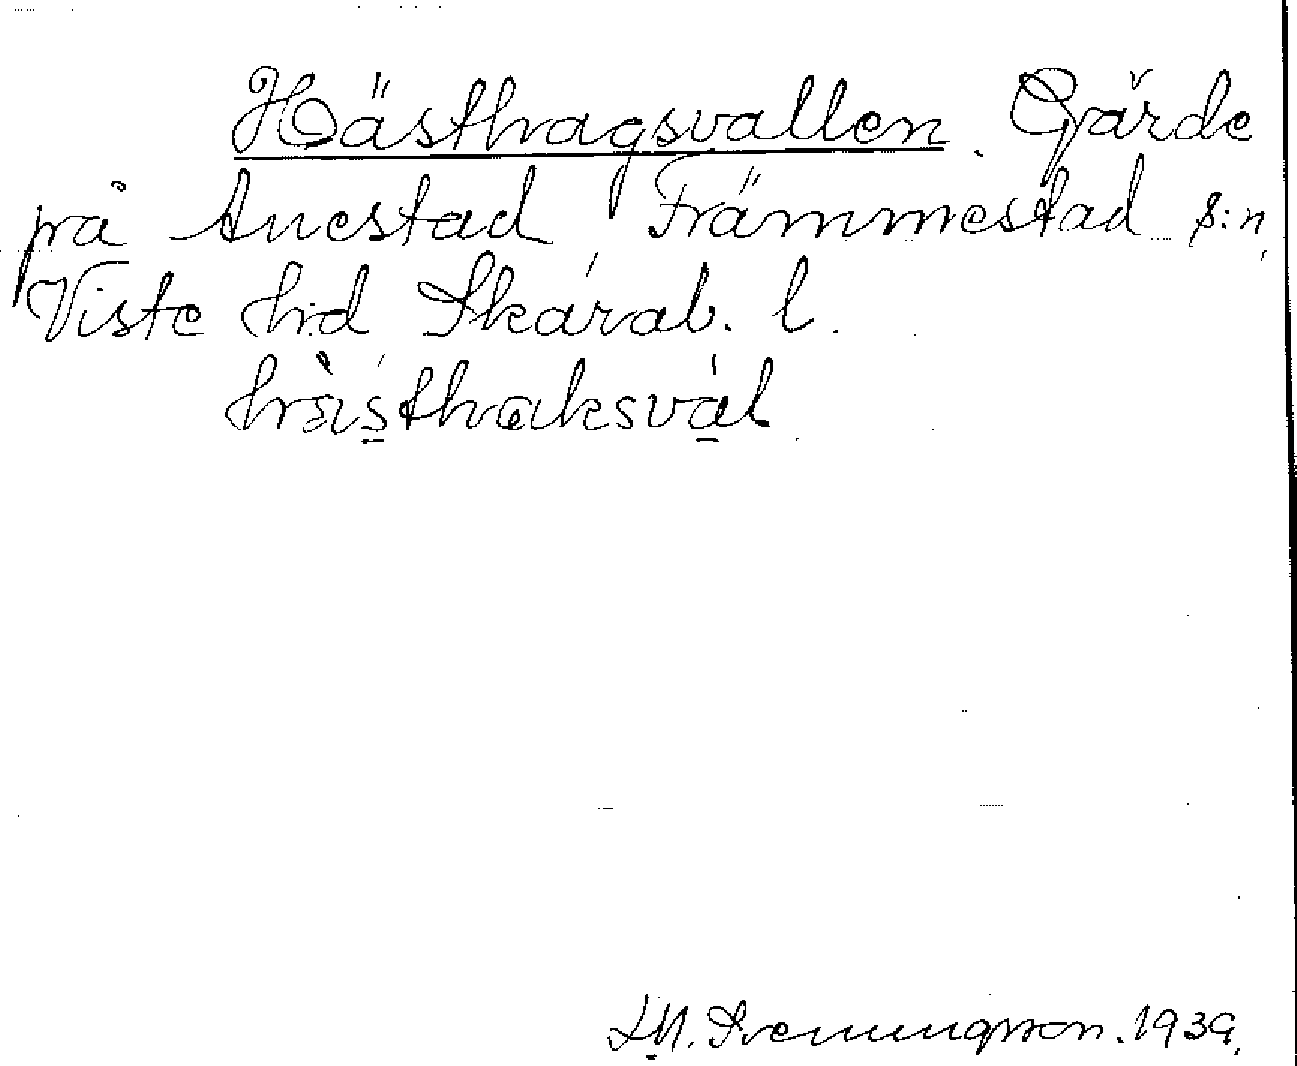 Hästhagsvallen. Gärde
på Anestad, Främmestad s:n,
Viste hd Skarab. l.
L.N. Svenungsson. 1939.